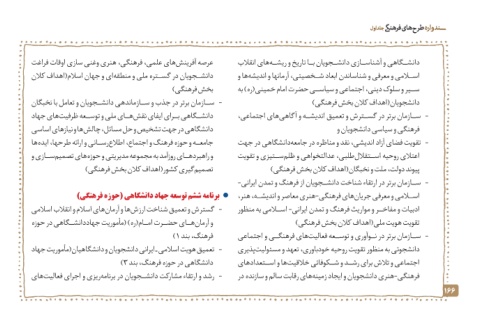 سند واره طرح‌های فرهنگی متداول
دانشگاهی و آشناسازی دانشجویان با تاریخ و ریشه‌های انقلاب
اسلامی و معرفی و شناساندن ابعاد شخصیتی، آرمانها و اندیشه‌ها و
سیر و سلوک دینی، اجتماعی و سیاسی حضرت امام خمینی(ره) به
دانشجویان (اهداف کلان بخش فرهنگی)
- سازمان برتر در گسترش و تعمیق اندیشه و آگاهی‌های اجتماعی،
فرهنگی و سیاسی دانشجویان و
- تقویت فضای آزاد اندیشی، نقد و مناظره در جامعه‌دانشگاهی در جهت
اعتلای روحیه استقلال‌طلبی، عدالتخواهی و ظلم‌ستیزی و تقویت
پیوند دولت، ملت و نخبگان (اهداف کلان بخش فرهنگی)
- سازمان برتر در ارتقاء شناخت دانشجویان از فرهنگ و تمدن ایرانی-
اسلامی و معرفی جریان‌های فرهنگی-هنری معاصر و اندیشه، هنر،
ادبیات و مفاخر و مواریث فرهنگ و تمدن ایرانی- اسلامی به منظور
تقویت هویت ملی (اهداف کلان بخش فرهنگی)
- سازمان برتر در نوآوری و توسعه فعالیت‌های فرهنگی و اجتماعی
دانشجوئی به منظور تقویت روحیه خودباوری، تعهد و مسئولیت‌پذیری
اجتماعی و تلاش برای رشد و شکوفائی خلاقیت‌ها و استعدادهای
فرهنگی-هنری دانشجویان و ایجاد زمینه‌های رقابت سالم و سازنده در
عرصه آفرینش‌های علمی، فرهنگی، هنری وغنی سازی اوقات فراغت
دانشجویان در گستره ملی و منطقه‌ای و جهان اسلام(اهداف کلان
بخش فرهنگی)
- سازمان برتر در جذب و ساماندهی دانشجویان و تعامل با نخبگان
دانشگاهی برای ایفای نقش‌های ملی و توسعه ظرفیت‌های جهاد
دانشگاهی در جهت تشخیص و حل مسائل، چالش‌ها و نیازهای اساسی
جامعه و حوزه فرهنگ و اجتماع، اطلاع‌رسانی و ارائه طرحها، ایده‌ها
و راهبردهای روزآمد به مجموعه مدیریتی و حوزه های تصمیم‌سازی و
تصمیم‌گیری کشور(اهداف کلان بخش فرهنگی)
• برنامه ششم توسعه جهاد دانشگاهی (حوزه فرهنگی)
- گسترش و تعمیق شناخت ارزش‌ها و آرمان‌های اسلام و انقلاب اسلامی
و آرمان‌های حضرت امام(ره) (مأموریت جهاددانشگاهی در حوزه
فرهنگ، بند ۱)
- تعمیق هویت اسلامی ـ ایرانی دانشجویان و دانشگاهیان(مأموریت جهاد
دانشگاهی در حوزه فرهنگ، بند ۳)
- رشد و ارتقاء مشارکت دانشجویان در برنامه‌ریزی و اجرای فعالیت‌های
۱۶۶